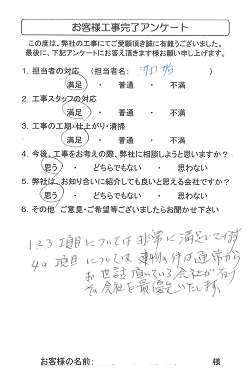 お客様工事完了アンケート
この度は、弊社の工事にてご受願頂き誠に有難うございました。
最後に、下記アンケートにお答え頂きます様お願い申し上げます。
1. 担当者の対応 (担当者名:
満足 ・ 普通 ・ 不満
2. 工事スタッフの対応
満足 ・ 普通 ・ 不満
3. 工事の工期・仕上がり・清掃
満足 ・ 普通 ・ 不満
4. 今後、工事をお考えの際、弊社に相談しようと思いますか?
思う ・ どちらでもない ・ 思わない
5. 弊社は、お知り合いに紹介しても良いと思える会社ですか?
思う ・ どちらでもない ・ 思わない
6. その他 ご意見・ご希望等ございましたらお聞かせ下さい
1 2 3 項目については非常に満足しています
4の項目については 建物の件は通常から
お世話頂いている会社が有り
その会社を最優先いたします
お客様の名前: